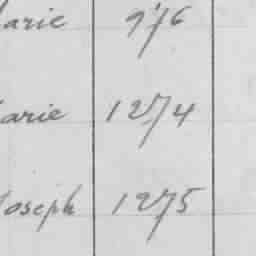 arie 976
arie 1274
Joseph 1275